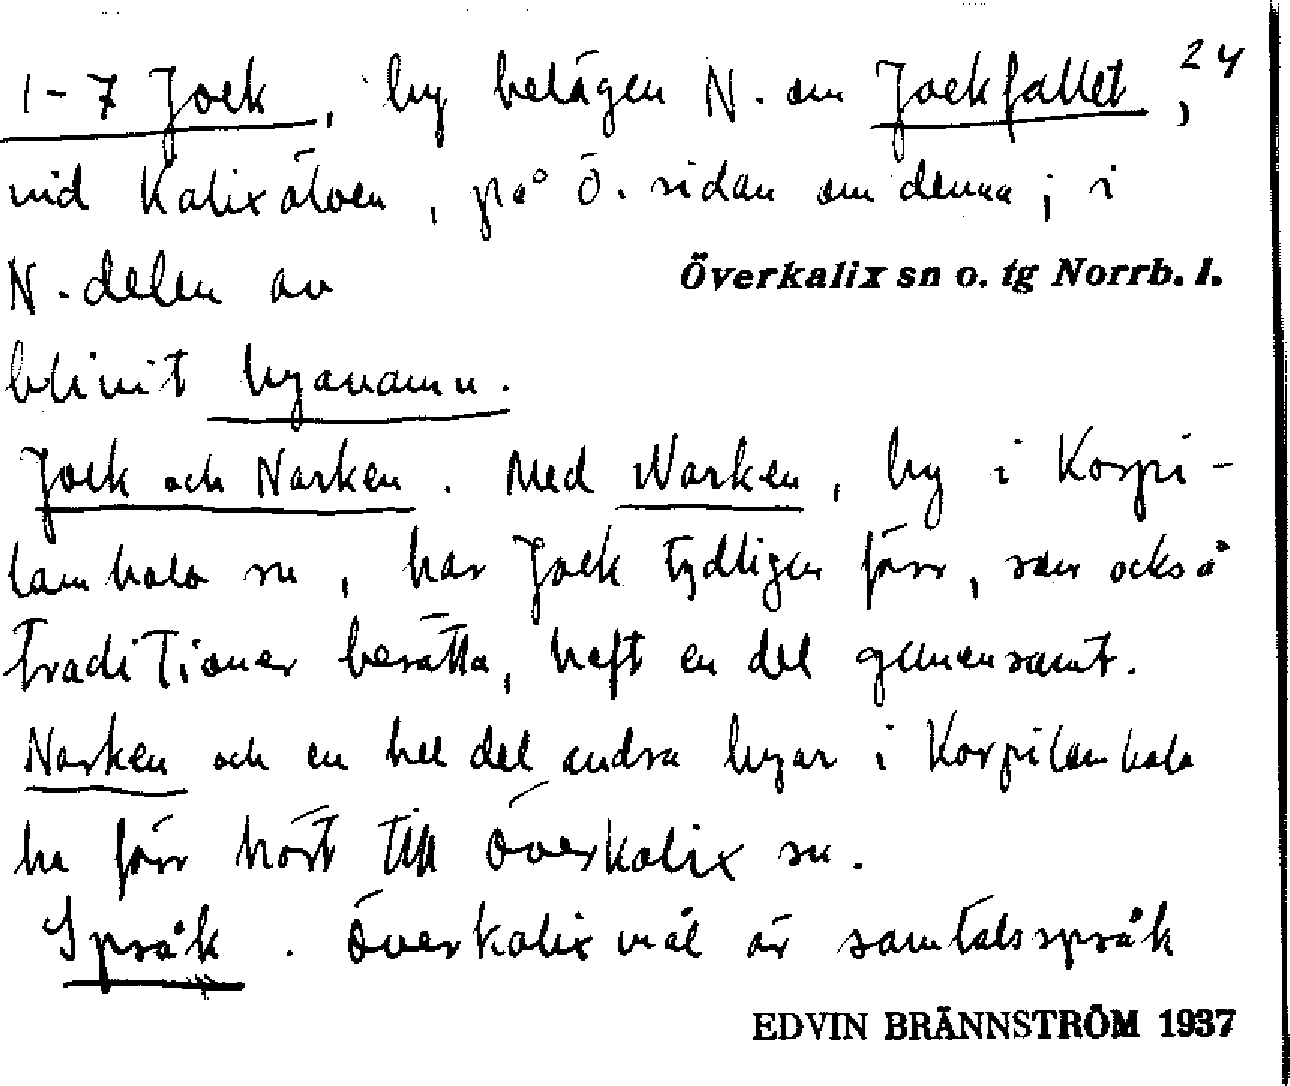 24
1-7 Jock, by belägen N. om Jockfallet,
vid Kalixälven, på Ö. sidan om denna; i
N. delen av Överkalix sn o. tg Norrb. l.
blivit byanamn.
Jock och Narken. Med Narken, by i Korpi-
lombolo sn, har Jock tydligen förr, som också
traditioner berätta, haft en del gemensamt.
Narken och en hel del andra byar i Korpilombolo
ha förr hört till Överkalix sn.
Språk. Överkalixmål är samtalsspråk
EDVIN BRÄNNSTRÖM 1937